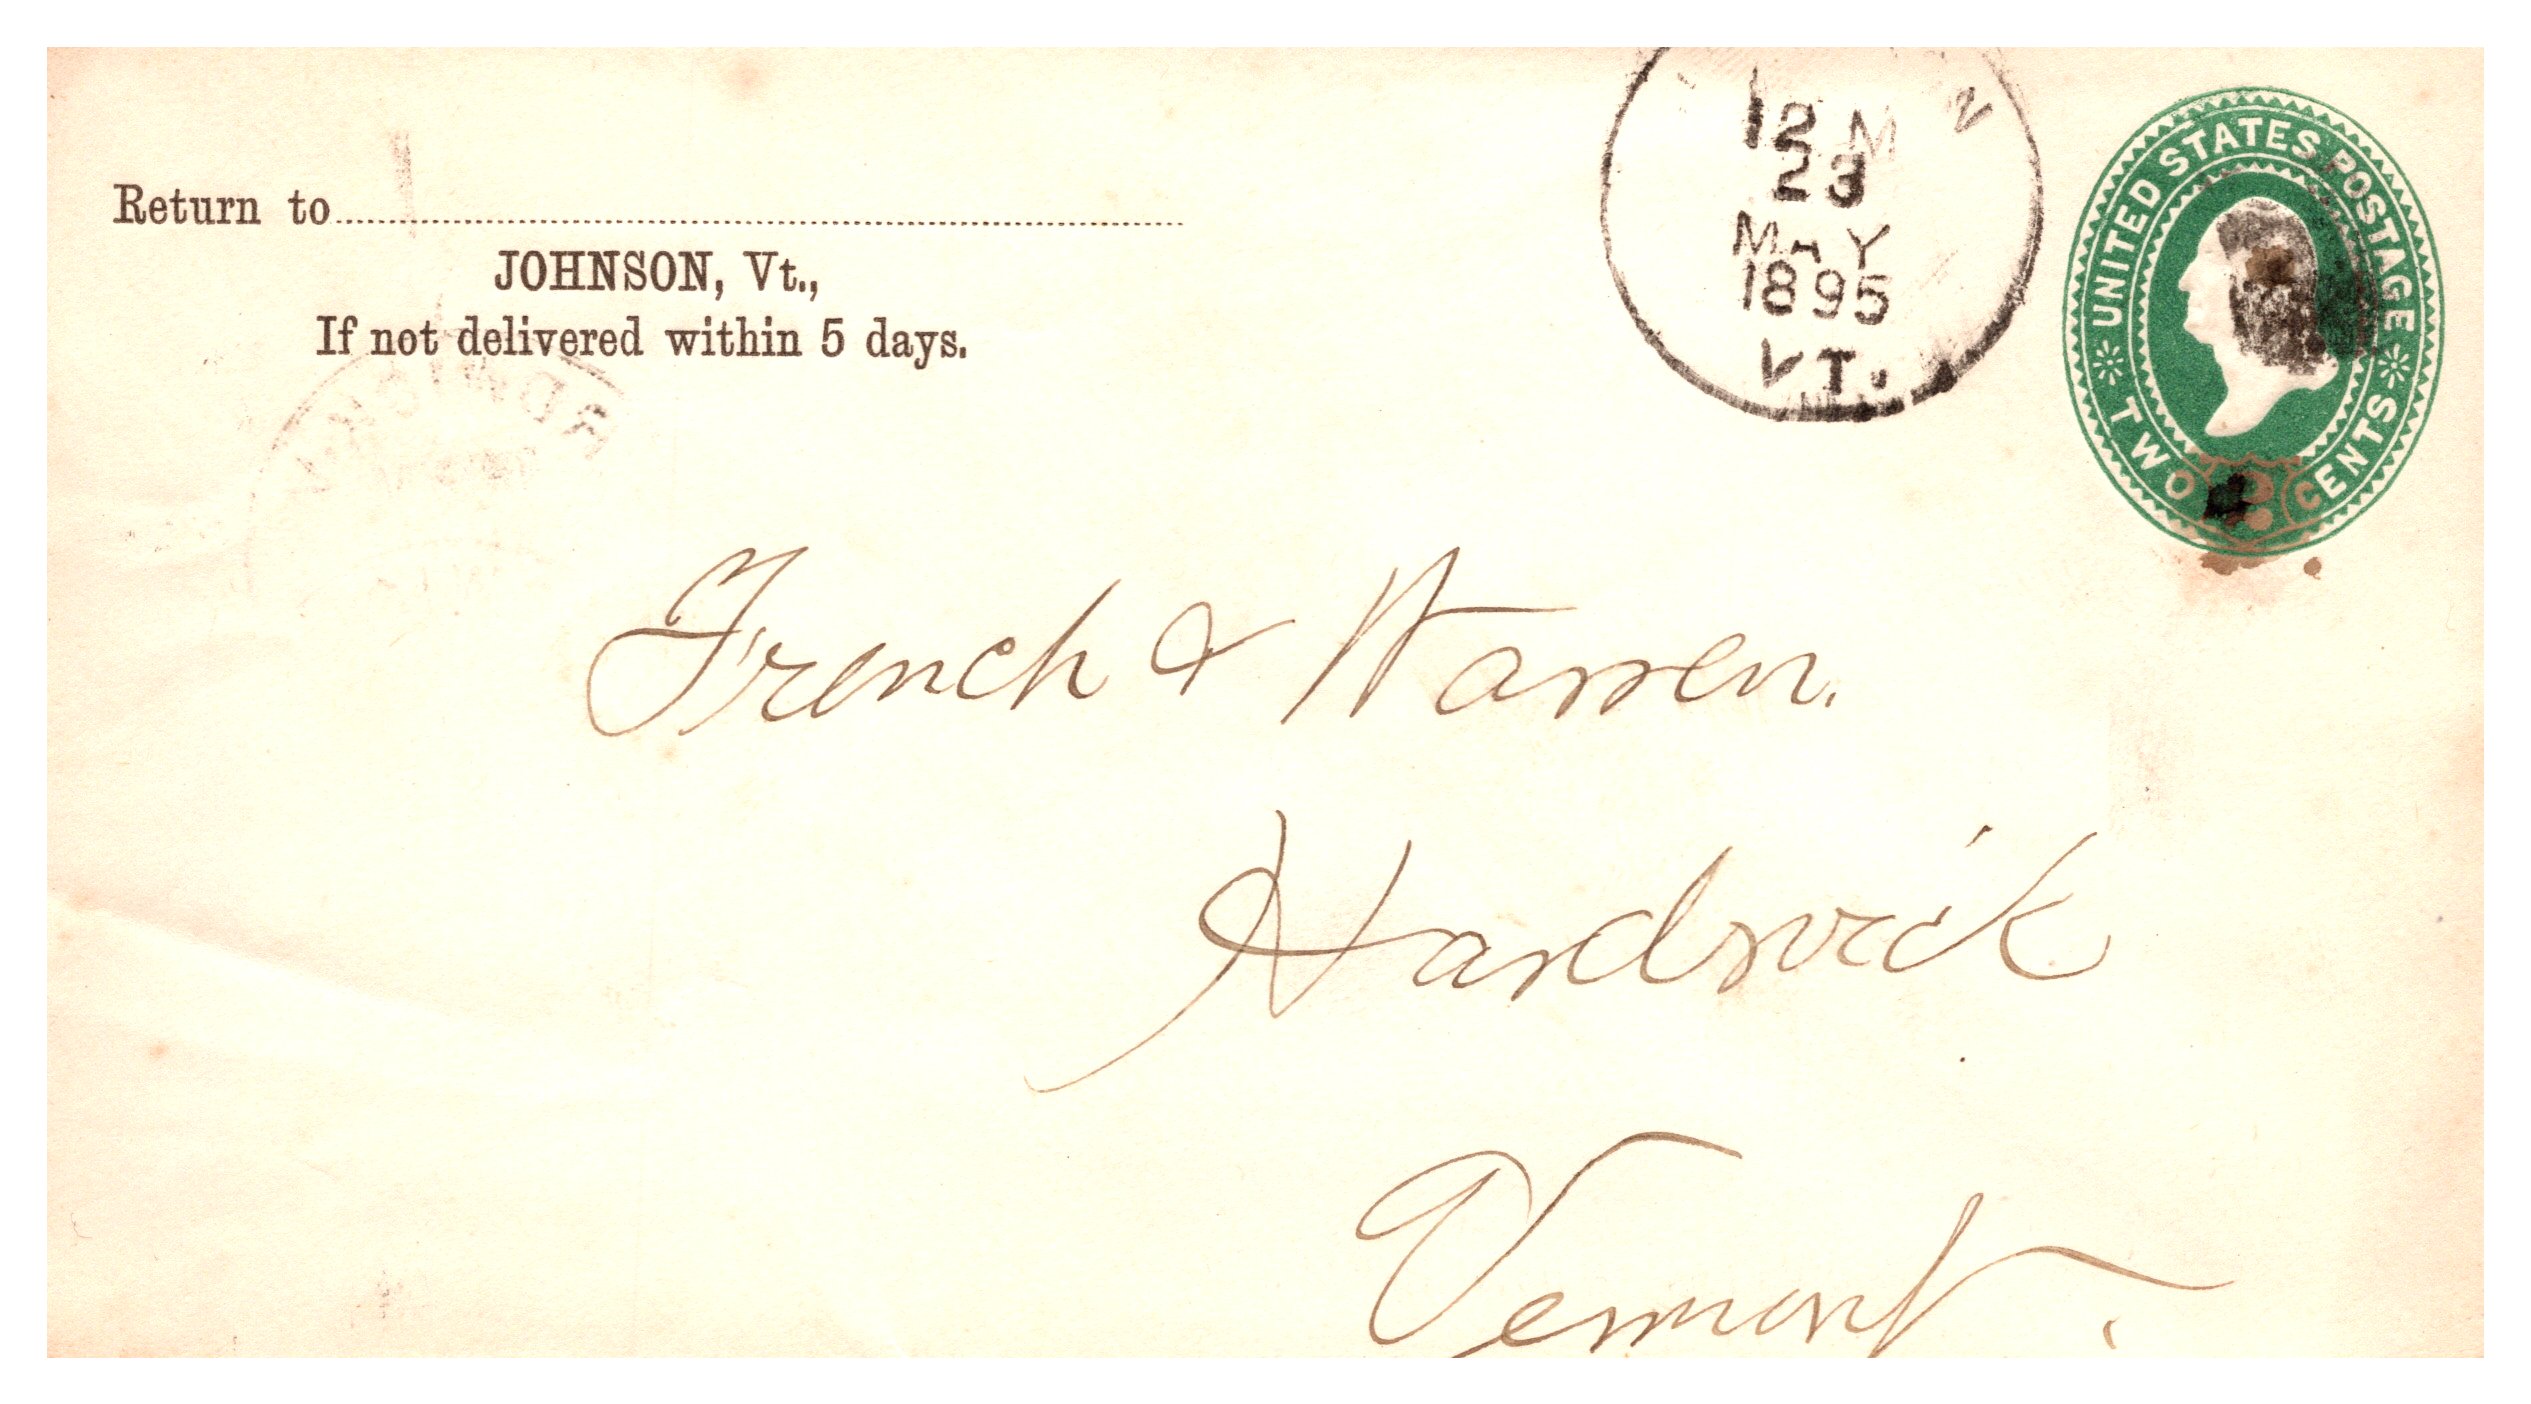 Return to
JOHNSON, Vt.,
If not delivered within 5 days.
12 M
23
MAY
1895
VT.
UNITED STATES POSTAGE
TWO CENTS
2
French & Warren.
Hardwick
Vermont.